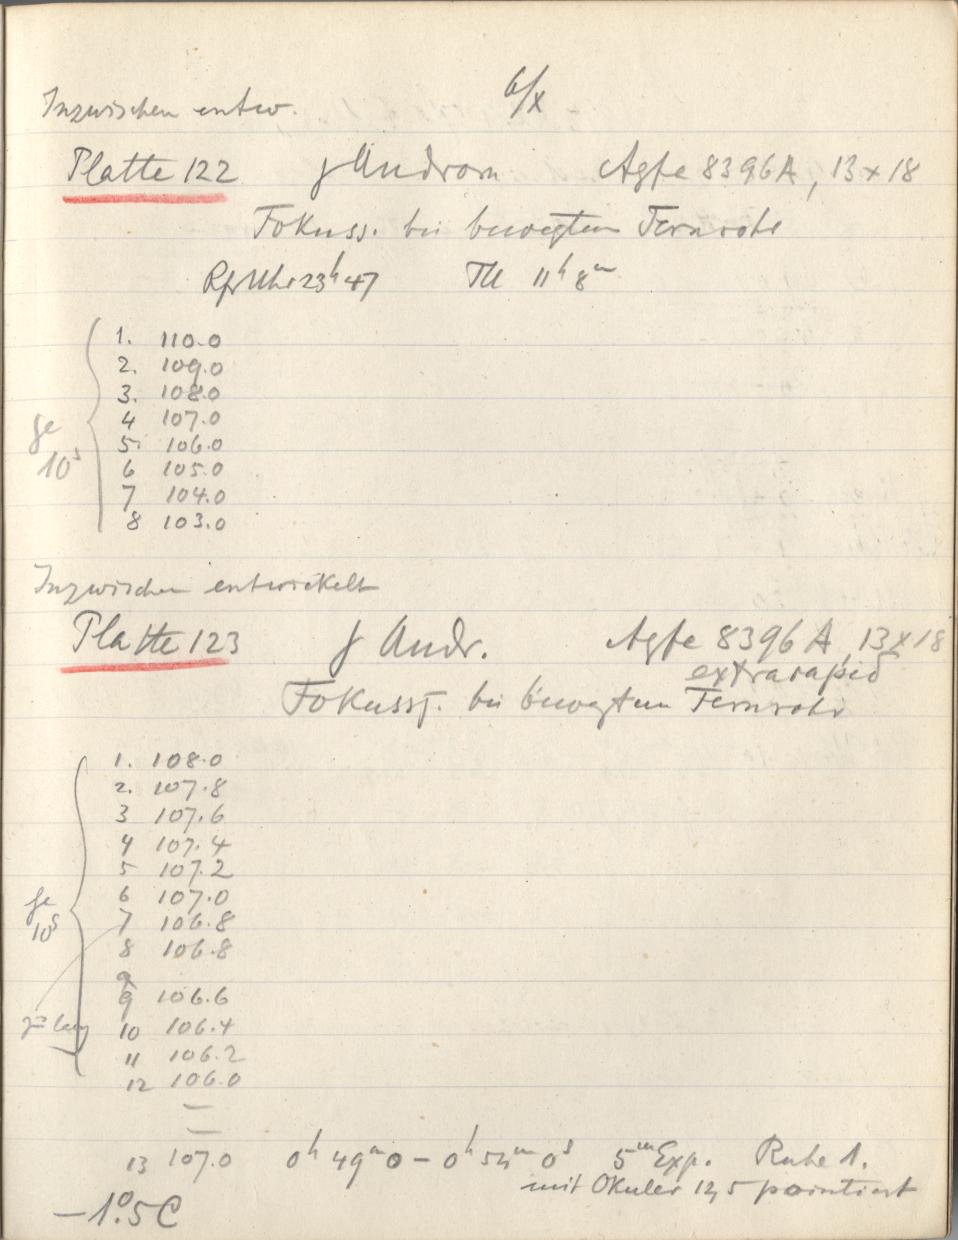 6/X
Inzwischen entw.
Platte 122 γ Androm Agfa 8396A, 13x18
Fokuss. bei bewegtem Fernrohr
Uhr 23h 47 11h 8m
1. 110.0
2. 109.0
3. 108.0
4 107.0
5. 106.0
6 105.0
7 104.0
8 103.0
je
10s
Inzwischen entwickelt
Platte 123 γ Andr. Agfa 8396A, 13x18
extrarapid
Fokussg. bei bewegtem Fernrohr
1. 108.0
2. 107.8
3 107.6
4 107.4
5 107.2
6 107.0
7 106.8
8 106.8
9 106.6
10 106.4
11 106.2
12 106.0
je
10s
zu lang
13 107.0 0h 49m 0 – 0h 54m 0s 5m Exp. Ruhe 1.
mit Okular 12,5 pointiert
–1°.5 C